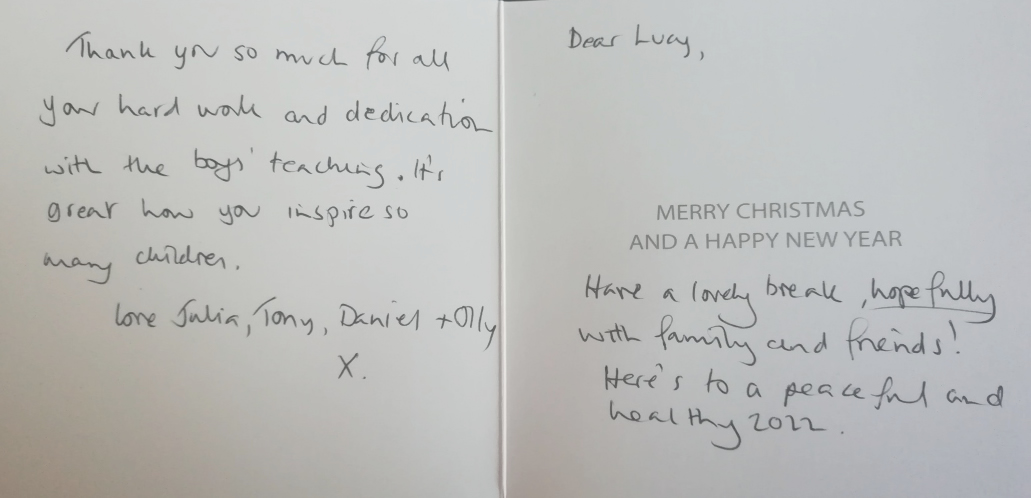 Thank you so much for all
your hard work and dedication
with the boys' teaching. It's
great how you inspire so
many children.
love Julia, Tony, Daniel + Olly
X.
Dear Lucy,
MERRY CHRISTMAS
AND A HAPPY NEW YEAR
Have a lovely break, hopefully
with family and friends!
Here's to a peaceful and
healthy 2022.